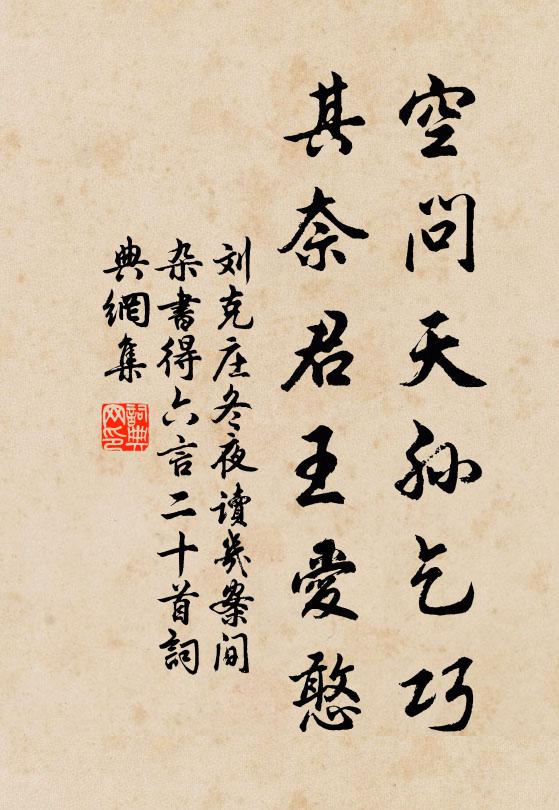 空问天孙乞巧
其奈君王愛憨
刘克庄冬夜讀几案间
杂書得六言二十首詞
典網集
詞典网印